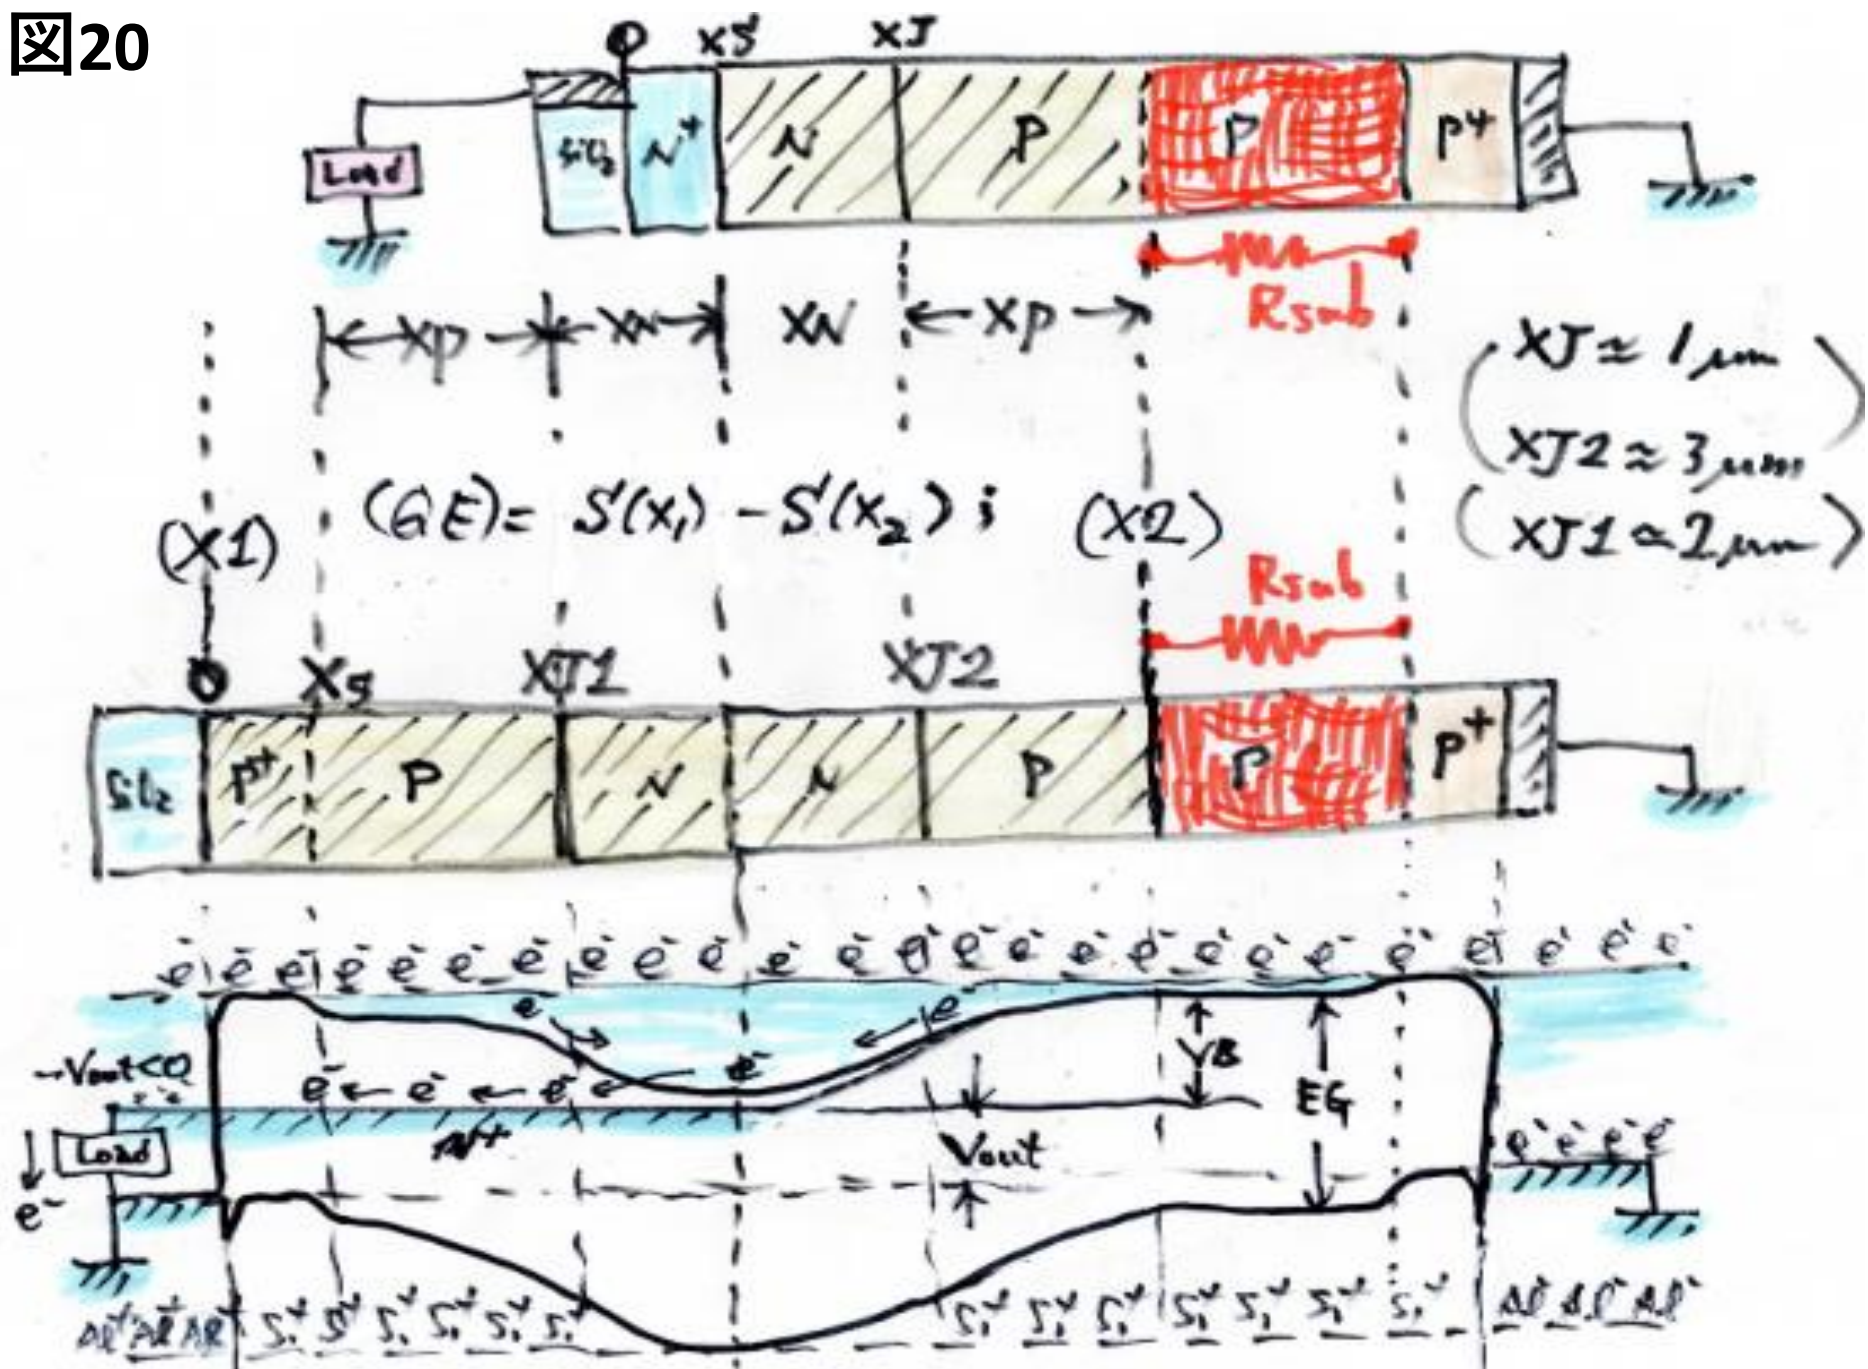 図20
O XS XJ
Load SiO2 N+ N P P P+
Rsub
XP XN XN XP
XJ ≈ 1 μm
XJ2 ≈ 3 μm
XJ1 ≈ 2 μm
(X1) (QE)= S(X1) - S(X2) ; (X2)
Rsub
O XS XJ1 XJ2
SiO2 P+ P N N P P P+
e- e- e- e- e- e- e- e- e- e- e- e- e- e- e- e- e- e- e- e- e- e- e-
e- e-
-Vout<0 e- e- e- e- VB EG
Load N+ Vout e- e- e- e-
e-
Al+ Al+ Al+ Si+ Si+ Si+ Si+ Si+ Si+ Si+ Si+ Si+ Si+ Si+ Si+ Si+ Al+ Al+ Al+